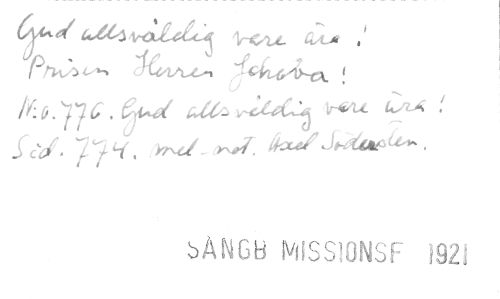 Gud allsväldig vare ära!
Prisen Herren Jehova!
N:o. 776. Gud allsväldig vare ära!
Sid. 774. mel. not. Axel Södersten.
SÅNGB MISSIONSF 1921